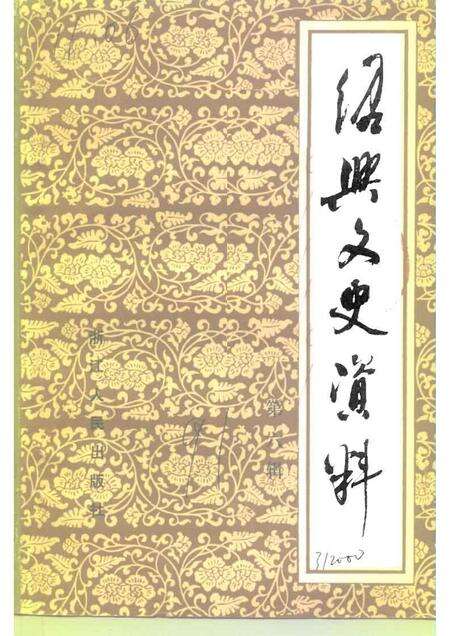 绍興文史資料
第六辑
浙江人民出版社
3/2000